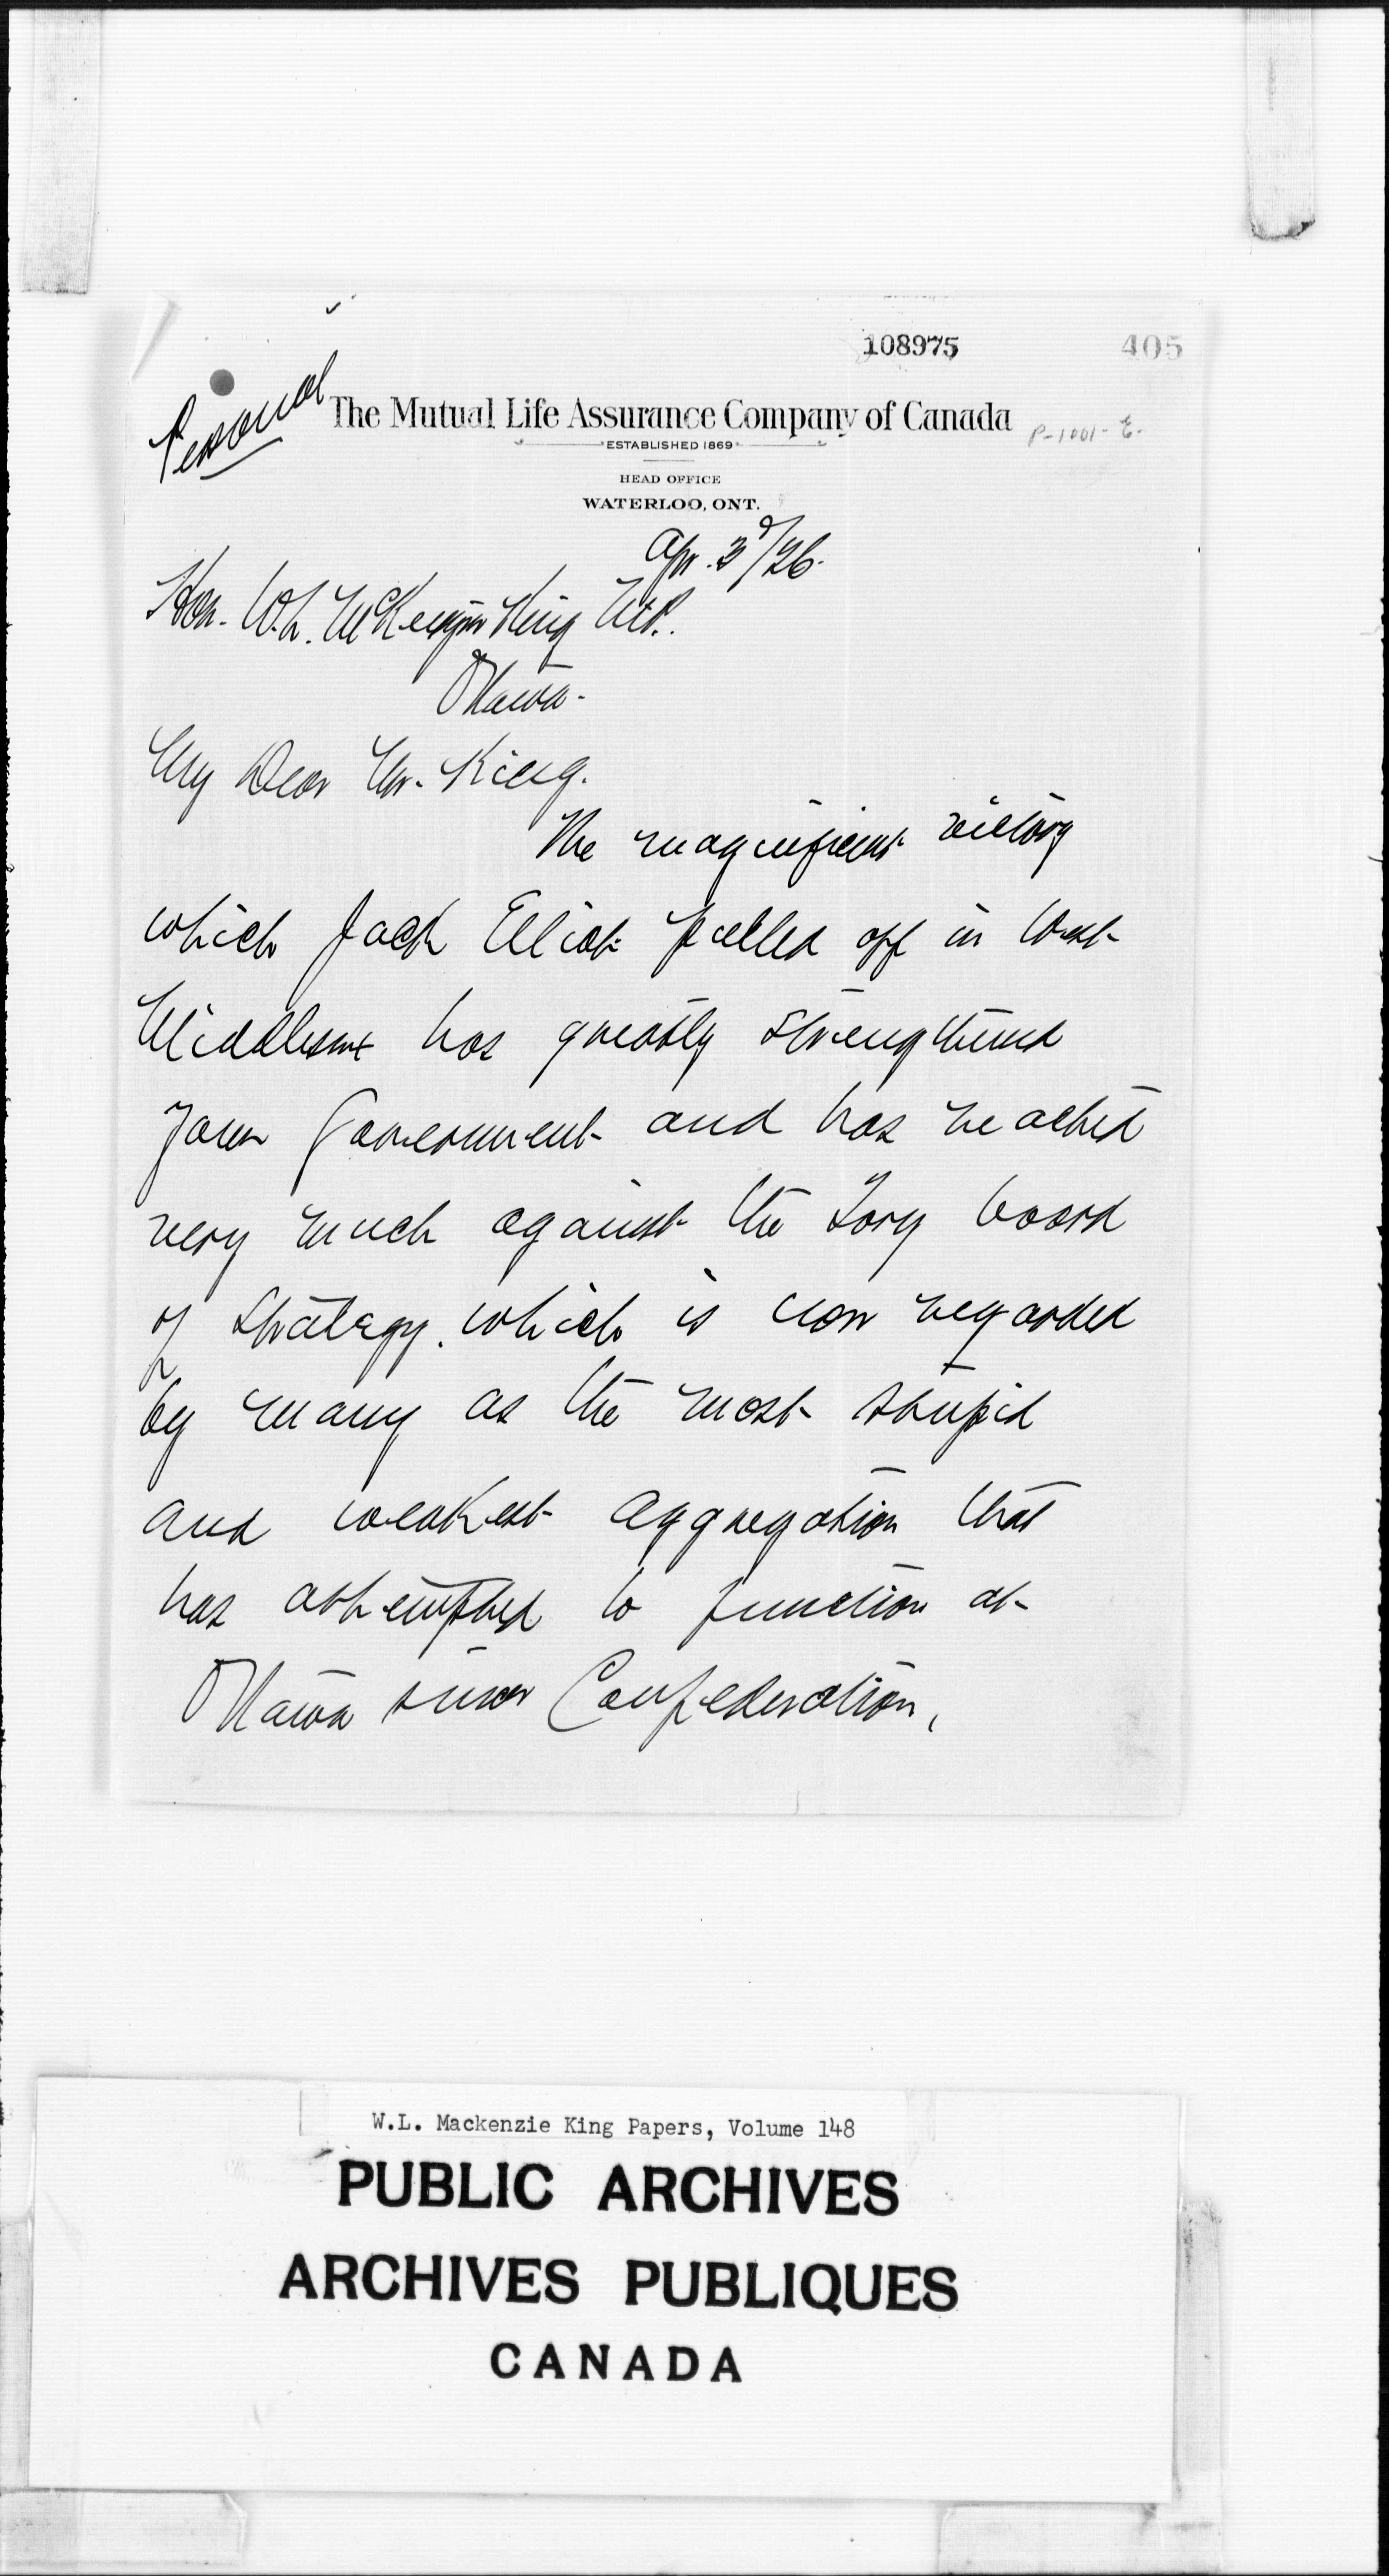 108975
405
Personal
The Mutual Life Assurance Company of Canada
P-1001-E.
ESTABLISHED 1869
HEAD OFFICE
WATERLOO, ONT.
Apr. 3d/26.
Hon. W.L. McKenzie King M.P.
Ottawa.
My Dear Mr. King.
The magnificent victory
which Jack Elliott pulled off in West
Middlesex has greatly strengthened
your Government and has reacted
very much against the Tory board
of strategy. which is now regarded
by many as the most stupid
and weakest aggregation that
has attempted to function at
Ottawa since Confederation,
W.L. Mackenzie King Papers, Volume 148
PUBLIC ARCHIVES
ARCHIVES PUBLIQUES
CANADA